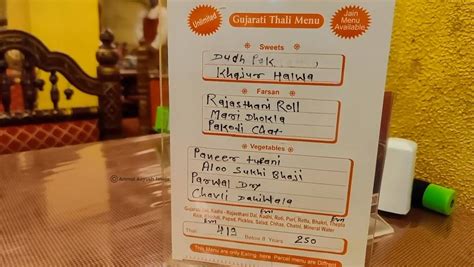 Unlimited
Gujarati Thali Menu
Jain
Menu
Available
Sweets
Dudh Pak
Khajur Halwa
Farsan
Rajasthani Roll
Mari Dhokla
Pakodi Chat
Vegetables
Paneer tufani
Aloo Sukhi Bhaji
Parwal Dry
Chavli Dahiwala
Gujarati Dal, Kadhi - Rajasthani Dal, Kadhi, Roti, Puri, Rotla, Bhakri, Thepla
Papad, Pickles, Salad, Chhas, Chatni, Mineral Water
Thali 419 Below 8 Years 250
This Menu are only Eating here. Parcel menu are Diffrent